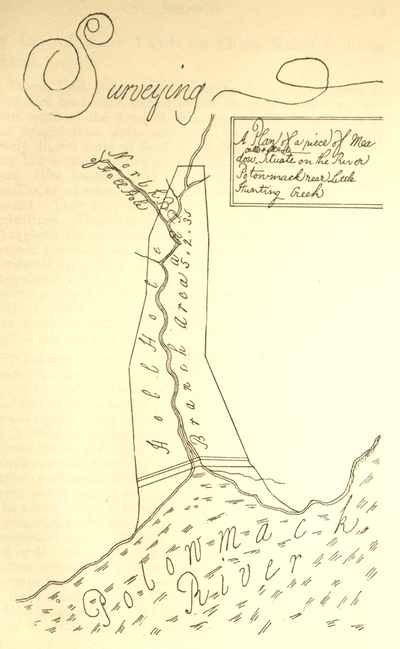 Surveying
A Plan of a piece of Mea
dow Situate on the River
Potowmack near Little
Hunting Creek
North Br
of Hell Hole
Hell Hole
Branch Area
5.2.35
Potowmack
River